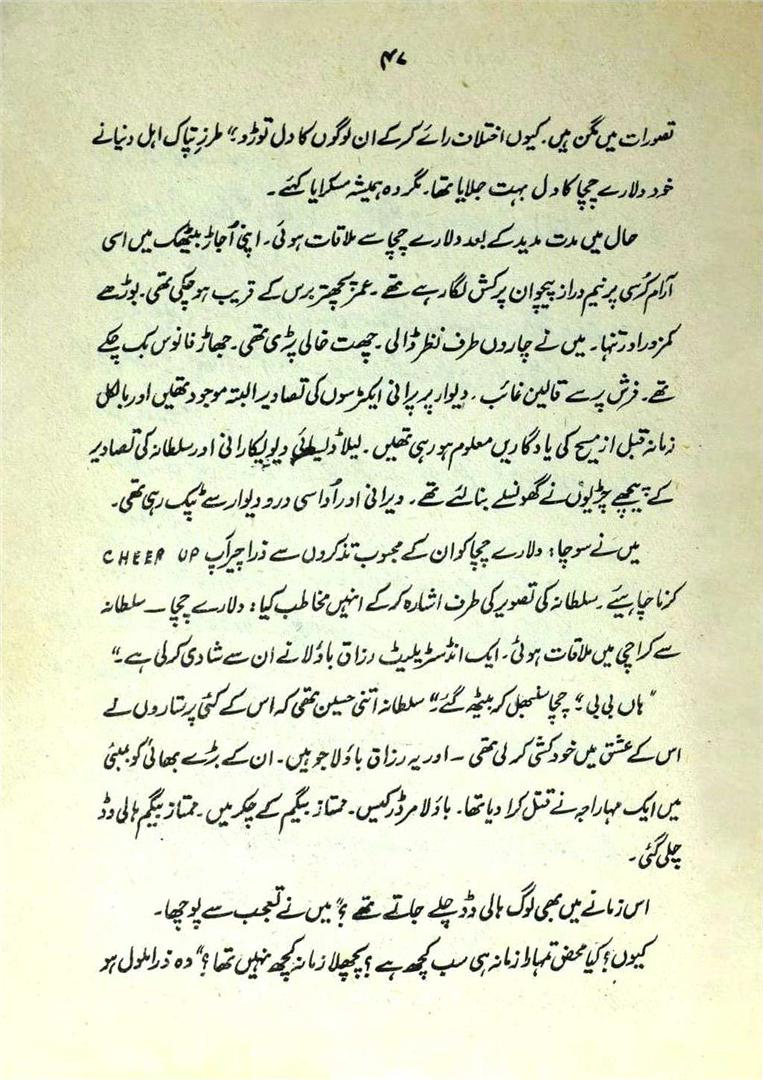 ۴۷
تصورات میں مگن ہیں۔ کیوں اختلاف رائے کر کے ان لوگوں کا دل توڑو؟“ طرزِ تپاک اہل دنیا نے
خود دلارے چچا کا دل بہت جلایا تھا۔ مگر وہ ہمیشہ مسکرایا کئے۔
حال میں مدت مدید کے بعد دلارے چچا سے ملاقات ہوئی۔ اپنی اُجاڑ بیٹھک میں اسی
آرام کُرسی پر نیم دراز پیچوان پر کش لگا رہے تھے۔ عمر پچھتر برس کے قریب ہو چکی تھی۔ بوڑھے
کمزور اور تنہا۔ میں نے چاروں طرف نظر ڈالی۔ چھت خالی پڑی تھی۔ جھاڑ فانوس بک چکے
تھے۔ فرش پر سے قالین غائب۔ دیوار پر پرانی ایکٹرسوں کی تصاویر البتہ موجود تھیں اور بالکل
زمانہ قبل از مسیح کی یادگاریں معلوم ہو رہی تھیں۔ لیلا ڈیسائی دیویکا رانی اور سلطانہ کی تصاویر
کے پیچھے چڑیوں نے گھونسلے بنا لئے تھے۔ ویرانی اور اُداسی در و دیوار سے ٹپک رہی تھی۔
میں نے سوچا: دلارے چچا کو ان کے محبوب تذکروں سے ذرا چیر آپ CHEER UP
کرنا چاہیئے۔ سلطانہ کی تصویر کی طرف اشارہ کر کے انہیں مخاطب کیا: دلارے چچا — سلطانہ
سے کراچی میں ملاقات ہوئی۔ ایک انڈسٹریلیسٹ رزاق باؤلا نے ان سے شادی کر لی ہے۔“
”ہاں بی بی“؛ چچا سنبھل کر بیٹھ گئے۔” سلطانہ اتنی حسین تھی کہ اس کے کئی پرستاروں نے
اس کے عشق میں خود کشی کر لی تھی — اور یہ رزاق باؤلا جو ہیں۔ ان کے بڑے بھائی کو بمبئی
میں ایک مہاراجہ نے قتل کرا دیا تھا۔ باؤلا مرڈر کیس۔ ممتاز بیگم کے چکر میں۔ ممتاز بیگم ہالی وڈ
چلی گئی۔
اس زمانے میں بھی لوگ ہالی وڈ چلے جاتے تھے؟“ میں نے تعجب سے پوچھا۔
کیوں؟ کیا محض تمہارا زمانہ ہی سب کچھ ہے؟ پچھلا زمانہ کچھ نہیں تھا؟“ وہ ذرا ملول ہو